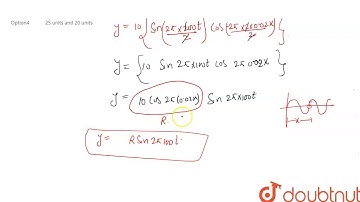 Option4 25 units and 20 units
y = 10 { Sin (2π×200t/2) cos (2π×2×0.02x/2) }
y = { 10 Sin 2π×100t cos 2π 0.02x }
y = 10 cos 2π(0.02x) Sin 2π×100t
R
x
y = R Sin 2π100t
doubtnut